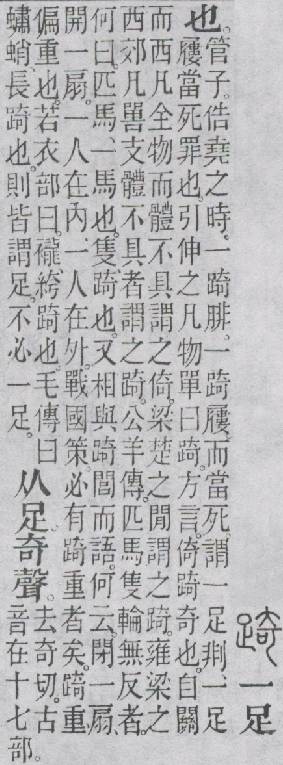 踦一足
也。管子。俈堯之時。一踦腓。一踦屨。而當死。謂一足剕一足
屨當死罪也。引伸之凡物單曰踦。方言。倚踦奇也。自關
而西凡全物而體不具謂之倚。梁楚之閒謂之踦。雍梁之
西郊凡嘼支體不具者謂之踦。公羊傳。匹馬隻輪無反者。
何曰。匹馬、一馬也。隻、踦也。又相與踦閭而語。何云。閉一扇、
開一扇。一人在內、一人在外。戰國策。必有踦重者矣。踦重、
偏重也。若衣部曰。襱、絝踦也。毛傳曰
蠨蛸、長踦也。則皆謂足。不必一足。
从足奇聲。
去奇切。古
音在十七部。